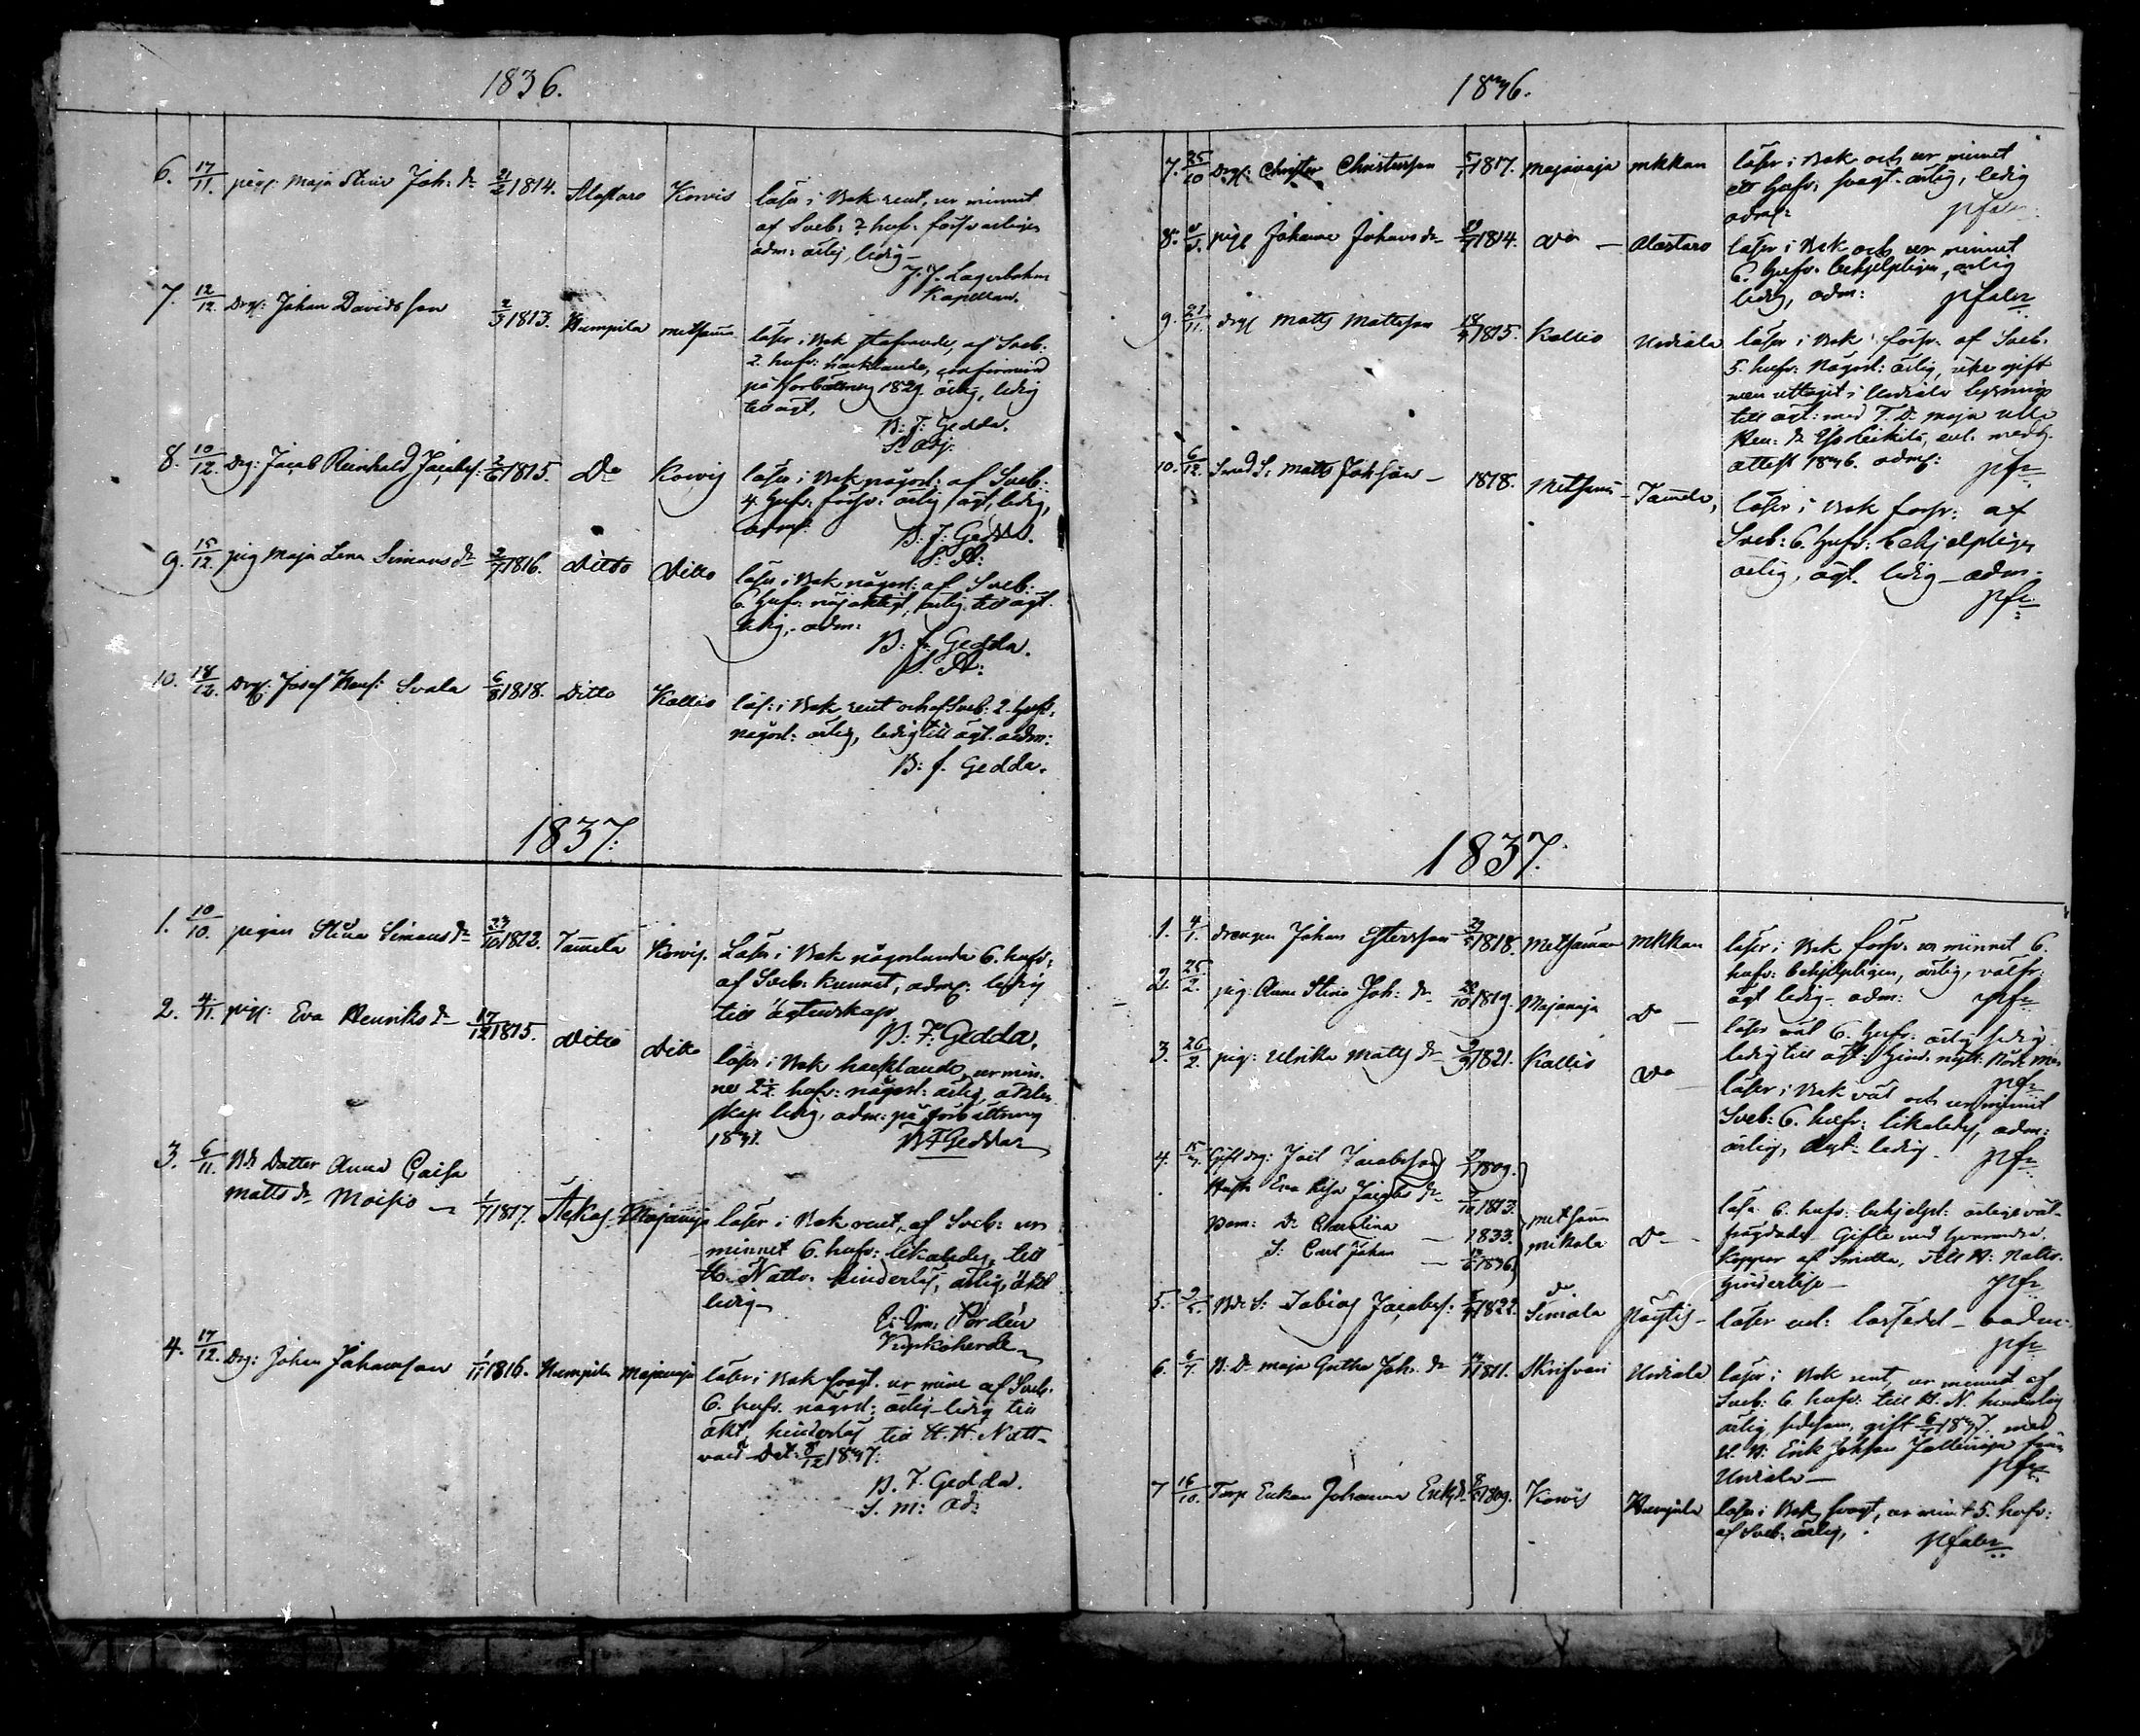 1836.
6. 17/11. pig: Maja Stina Joh: dr 21/2 1814. Alastaro Korvis läser i Bok rent, ur minnet
af Sveb: 2 huf: försvarligen
adm: ärlig, ledig –
J. J. Lagerbohm
Kapellan.
7. 12/12. Drg: Johan Davidsson 2/3 1813. Humpila Metsämä läser i Bok stafvande, af Sveb:
2. hufv: hacklande, confirmerad
på förbättring 1829. ärlig, ledig
till ägt.
B: F: Gedda.
S. Adj.
8. 10/12. Drg: Jacob Reinhold Jacobs: 2/6 1815. Do Korvis läser i Bok någorl: af Sveb:
4. hufv: försv: ärlig ägt, ledig,
adm:
B: F: Gedda.
S: A:
9. 15/12. pig Maja Lena Simonsdr 2/7 1816. Ditto Ditto läser i Bok någorl: af Sveb:
6. hufv: nöjaktigt, ärlig till ägt.
ledig, adm:
B: F: Gedda.
S. A:
10. 18/12. Drg: Josef Henr: Svala 6/8 1818. Ditto Kallio läs: i Bok rent och af Sveb: 2. hufv:
någorl: ärlig, ledig till ägt. adm:
B: F. Gedda.
1837:
1. 10/10. pigan Stina Simonsdr 23/10 1813. Tamela Korvis. Läser i Bok någorlunda 6. hufv:
af Sveb: kunnat, adm: ledig
till ägtenskap
B: F: Gedda.
2. 4/11. pig: Eva Henriksdr 17/12 1815. Ditto Ditto läser i Bok hacklande, ur min-
ne 2½ hufv: någorl: ärlig, äkten
skap ledig, adm: på förbättring
1837. B F Gedda
3. 6/11. Bd: Dotter Anna Caisa
Matts dr Moisio – 1/7 1817. Majanoja läser i Bok rent, af Sveb: ur
minnet 6. hufv: likaledes, till
H. Nattv. hinderlös, ärlig, äkt
ledig –
Nordén
Kyrkoherde
4. 17/12. Drg: Johan Johansson 1/11 1816. Humpila Majanoja läser i Bok svagt. ur minne af Sveb:
6. hufv. någorl: ärlig – ledig till
äkt, hinderlös till H. H. Natt-
vard Dat: 8/12 1837.
B. F. Gedda.
S. M: Ad:
1836.
7. 25/10 Drg: Christer Christersson 5/1 1817. Majanoja Mkkan läser i Bok och ur minnet
ett hufv: svagt. ärlig, ledig
adm: pfaler
8. pig Johanna Johansdr 1814. Do – Alastaro läser i Bok och ur minnet
6. hufv: behjelpligen, ärlig
ledig, adm: pfaler
9. 21/11. drg Matts Mattsson 18/2 1815. Kallio Urdiala läser i Bok försv. af Sveb.
5. hufv: Någorl: ärlig, icke gift
men uttagit i Urdiala lysning
till ägt: med T. Dr Maja Ulla
Hen: dr enl. medf.
attest 1836. adm: pfr
10. 6/12. Smed S: Matts Johsson – 1818. Metsämä – Tamela, läser i Bok försv: af
Sveb: 6. hufv: behjelpligen
ärlig, ägt. ledig – adm –
pfr
1837.
1. 4/1. drengen Johan Estersson 1818. Metsämaa Mkkan läser i Bok försv: ur minnet 6.
hufv: behjelpligen, ärlig, välfr:
ägt ledig – adm: pfr
2. 25/2. pig: Anna Stina Joh: dr 28/10 1819. Majanoja Do – läser väl 6. hufv: ärlig ledig
ledig till ägt:
pfr
3. 26/2. pig: Ulrika Matts dr 2/9 1821. Kallio Do – läser i Bok väl och ur minnet
Sveb: 6. hufv: likaledes, adm:
ärlig, ägt ledig – pfr
4. 15/ Gift drg: Joel Jacobsson 1809.
Hustr Eva Lisa Jacobs dr 1813.
Barn: Dr Carolina – 1833.
S: Carl Johan – 1836. Metsäma
Mikola Do – läs: 6. hufv: behjelpl: ärlige väl-
frägdade Gifte med hvarandra.
koppor af Smitta, till H: Nattv.
hinderlöse – pfr
5. Bd: S: Tobias Jacobss: 1822. do
Simola Pöytis – läser enl: lästedel – adm –
pfr
6. B: Dr Maja Greta Joh: dr 1811. Skrifvari Urdiala läser i Bok rent, ur minnet af
Sveb: 6. hufv: till H. N. hinderlig
ärlig, sedesam, gift 1837. med
Erik Johsson från
Urdiala – pfr
7 16/10. Torp Enkan Johanna Eriksdr 1809. Korvis Humpila läser i Bok svagt, ur minnet 5. hufv:
af Sveb: ärlig, pfaler